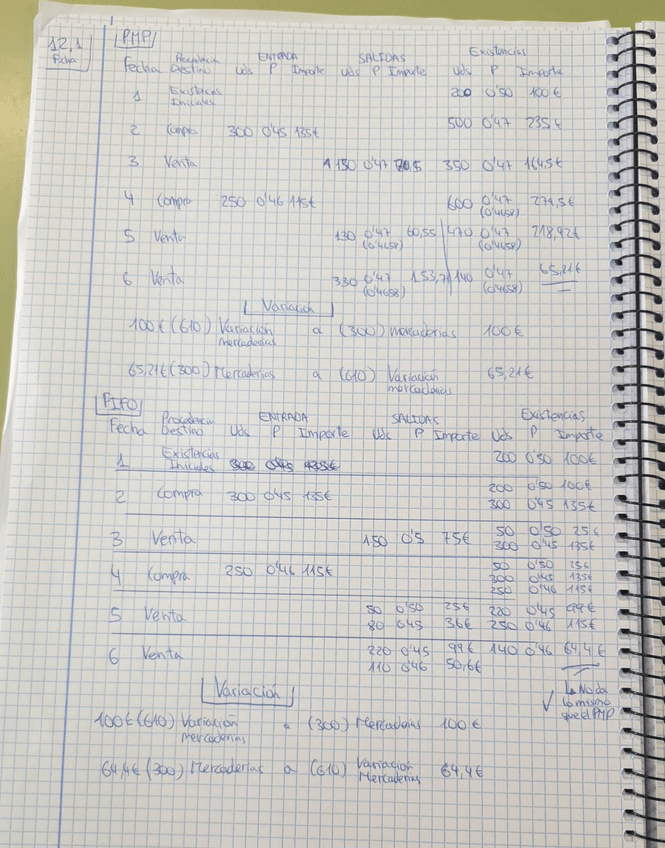 12,1
Ficha
PMP
Procedencia ENTRADA SALIDAS Existencias
Fecha Destino Uds P Importe Uds P Importe Uds P Importe
1 Existencias Iniciales 200 0'50 100€
2 Compra 300 0'45 135€ 500 0'47 235€
3 Venta 150 0'47 70,5 350 0'47 164,5€
4 Compra 250 0'46 115€ 600 0'47 279,5€
(0'4658)
5 Venta 130 0'47 60,55 470 0'47 218,92€
(0'4658) (0'4658)
6 Venta 330 0'47 153,71 140 0'47 65,21€
(0'4658) (0'4658)
Variación
100€ (610) Variación mercaderías a (300) mercaderías 100€
65,21€ (300) Mercaderías a (610) Variación mercaderías 65,21€
FIFO
Procedencia ENTRADA SALIDAS Existencias
Fecha Destino Uds P Importe Uds P Importe Uds P Importe
1 Existencias Iniciales 200 0'50 100€
200 0'50 100€
2 Compra 300 0'45 135€ 300 0'45 135€
3 Venta 150 0'5 75€ 50 0'50 25€
300 0'45 135€
4 Compra 250 0'46 115€ 50 0'50 25€
300 0'45 135€
250 0'46 115€
5 Venta 50 0'50 25€ 220 0'45 99€
80 0'45 36€ 250 0'46 115€
6 Venta 220 0'45 99€ 140 0'46 64,4€
110 0'46 50,6€
Variación
No da
lo mismo
que el PMP
100€ (610) Variación mercaderías a (300) Mercaderías 100€
64,4€ (300) Mercaderías a (610) Variación Mercaderías 64,4€